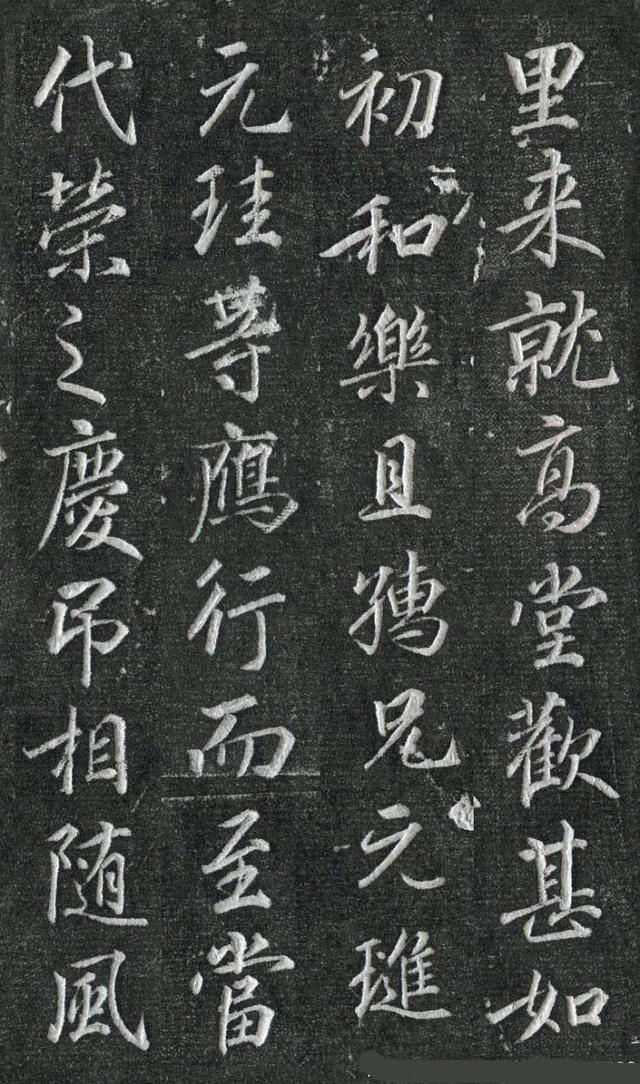 里来就高堂歡甚如
初和樂且孺兄元璡
元珪等鴈行而至當
代榮之慶吊相随風